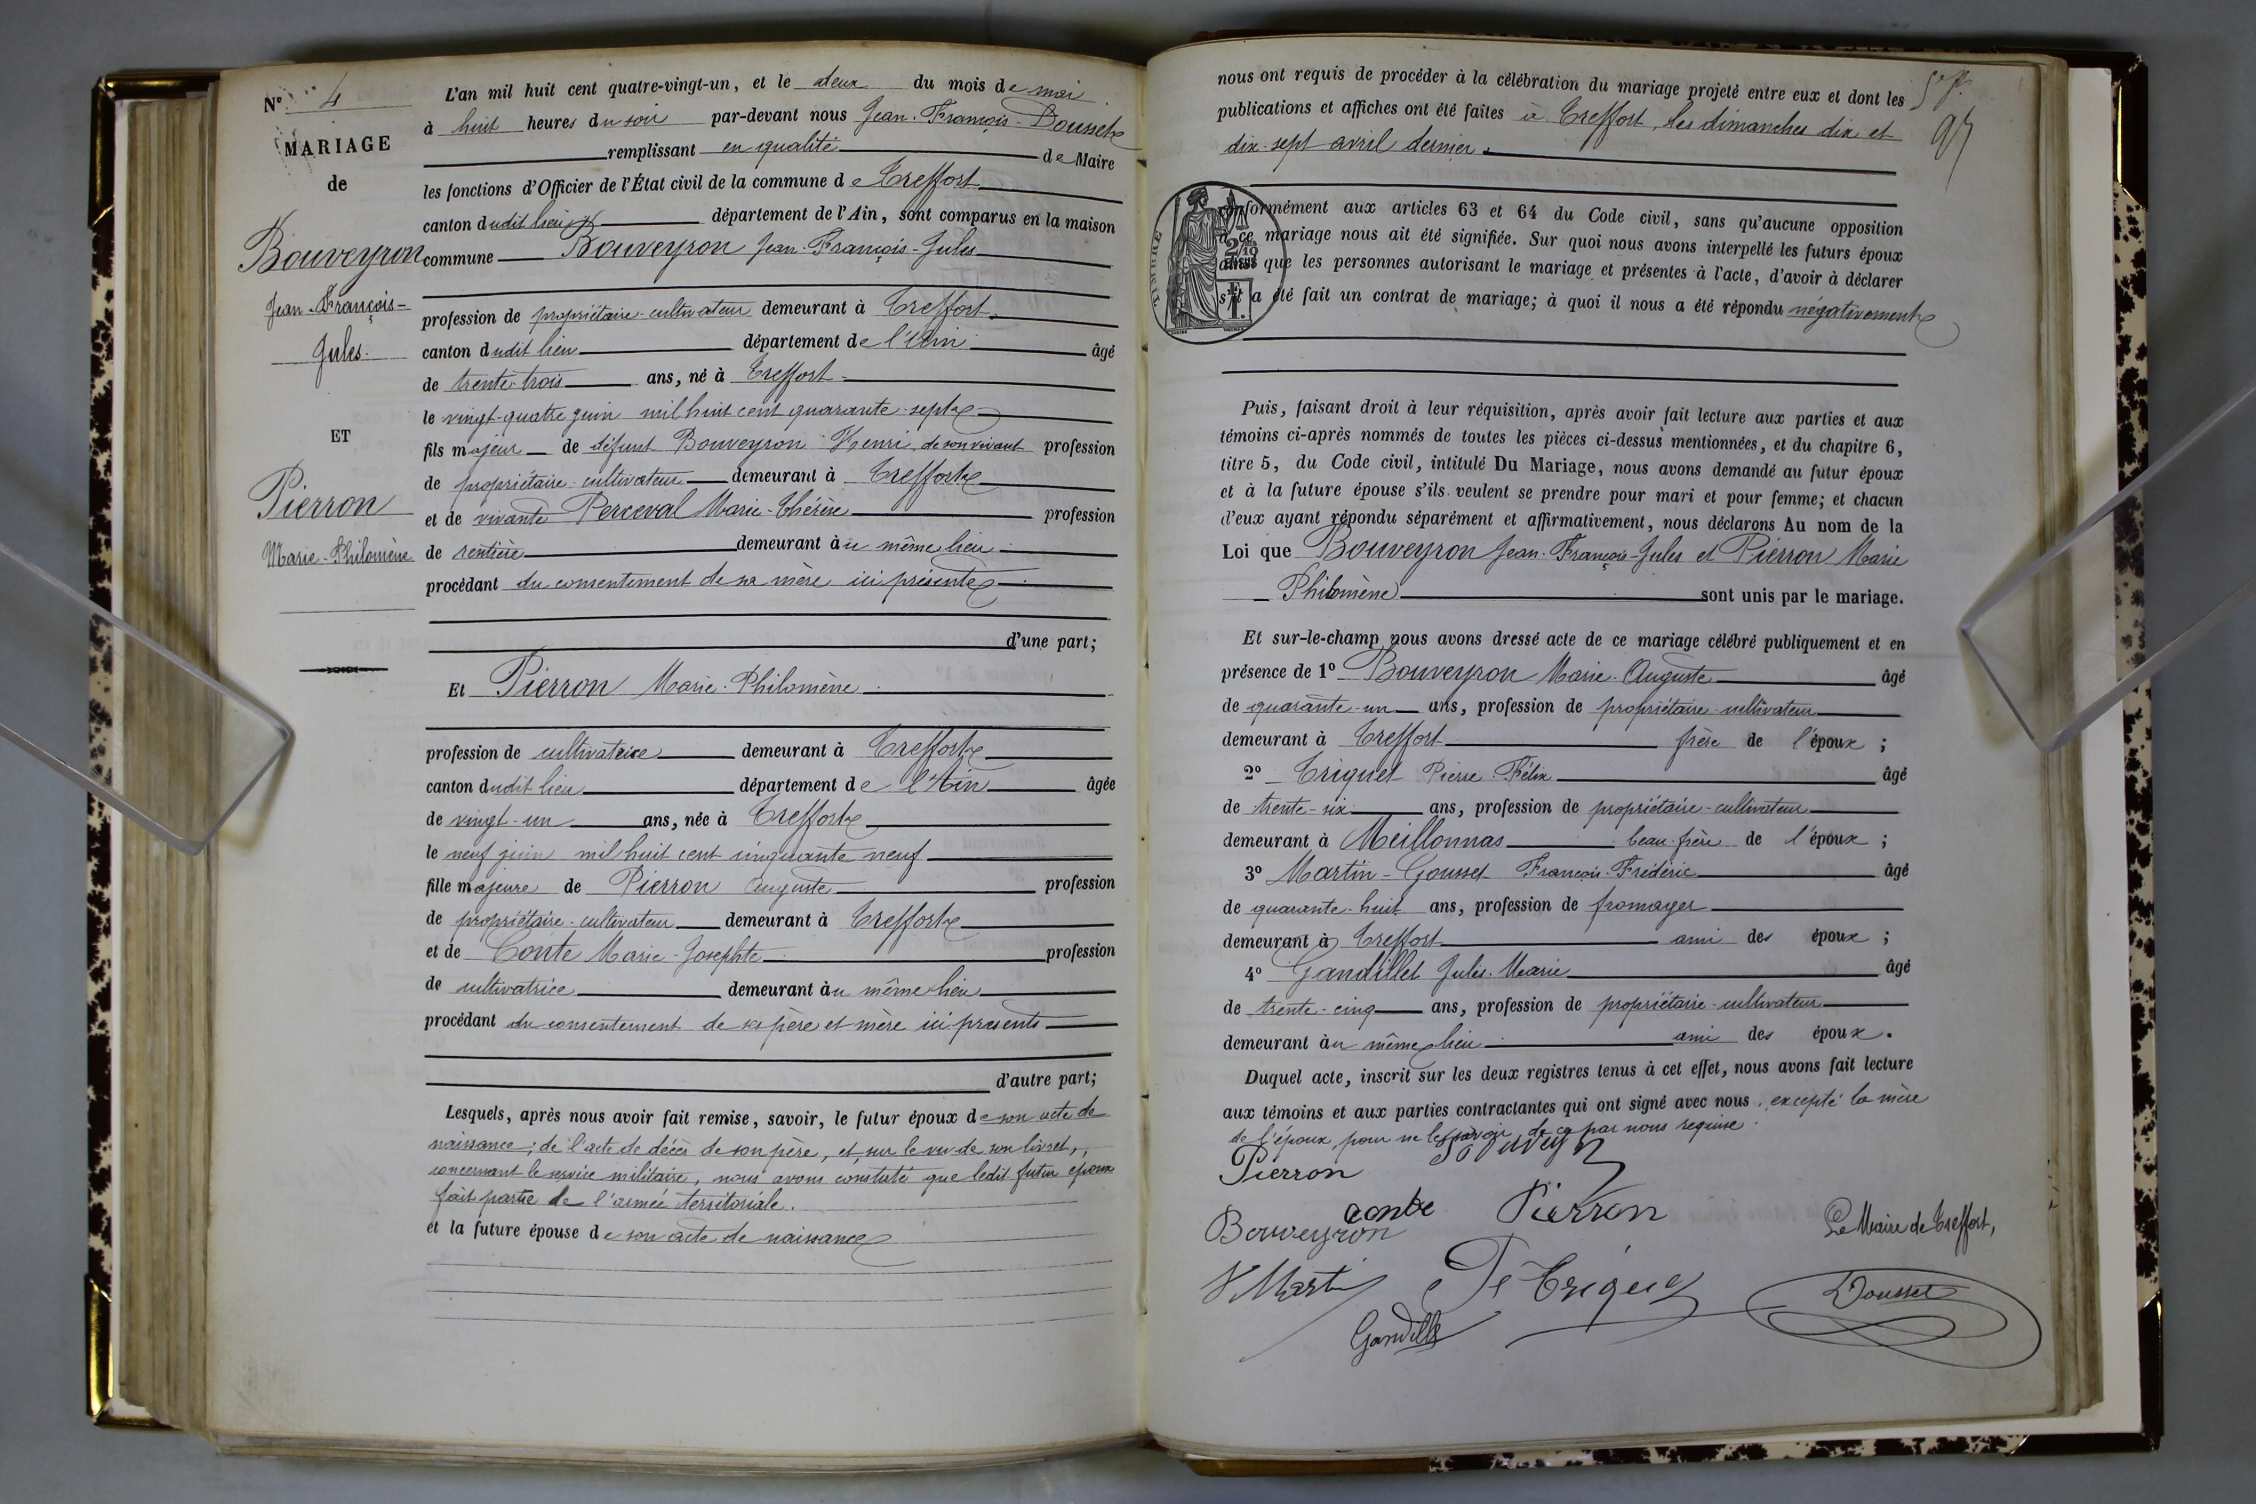 N° 4
MARIAGE
de
Bouveyron
Jean-François-
Jules.
ET
Pierron
Marie-Philomène
L'an mil huit cent quatre-vingt-un, et le deux du mois de mai
à huit heures du soir par-devant nous Jean-François Dousset
remplissant en qualité de Maire
les fonctions d'Officier de l'État civil de la commune de Treffort
canton dudit lieu département de l'Ain, sont comparus en la maison
commune Bouveyron Jean-François-Jules
profession de propriétaire-cultivateur demeurant à Treffort
canton dudit lieu département de l'Ain âgé
de trente-trois ans, né à Treffort
le vingt-quatre juin mil huit cent quarante-sept
fils majeur de défunt Bouveyron Henri, de son vivant profession
de propriétaire-cultivateur demeurant à Treffort
et de vivante Perceval Marie-Thérèse profession
de rentière demeurant au même lieu
procédant du consentement de sa mère ici présente
d'une part;
Et Pierron Marie-Philomène
profession de cultivatrice demeurant à Treffort
canton dudit lieu département de l'Ain âgée
de vingt-un ans, née à Treffort
le neuf juin mil huit cent cinquante neuf
fille majeure de Pierron Auguste profession
de propriétaire-cultivateur demeurant à Treffort
et de Conte Marie-Josephte profession
de cultivatrice demeurant au même lieu
procédant du consentement de ses père et mère ici présents
d'autre part;
Lesquels, après nous avoir fait remise, savoir, le futur époux de son acte de
naissance; de l'acte de décès de son père, et, sur le vu de son livret,
concernant le service militaire, nous avons constaté que ledit futur époux
fait partie de l'armée territoriale.
et la future épouse de son acte de naissance
nous ont requis de procéder à la célébration du mariage projeté entre eux et dont les
publications et affiches ont été faites à Treffort, les dimanches dix et
dix-sept avril dernier.
TIMBRE
conformément aux articles 63 et 64 du Code civil, sans qu'aucune opposition
à ce mariage nous ait été signifiée. Sur quoi nous avons interpellé les futurs époux
ainsi que les personnes autorisant le mariage et présentes à l'acte, d'avoir à déclarer
s'il a été fait un contrat de mariage; à quoi il nous a été répondu négativement
Puis, faisant droit à leur réquisition, après avoir fait lecture aux parties et aux
témoins ci-après nommés de toutes les pièces ci-dessus mentionnées, et du chapitre 6,
titre 5, du Code civil, intitulé Du Mariage, nous avons demandé au futur époux
et à la future épouse s'ils veulent se prendre pour mari et pour femme; et chacun
d'eux ayant répondu séparément et affirmativement, nous déclarons Au nom de la
Loi que Bouveyron Jean-François-Jules et Pierron Marie
Philomène sont unis par le mariage.
Et sur-le-champ nous avons dressé acte de ce mariage célébré publiquement et en
présence de 1° Bouveyron Marie-Auguste âgé
de quarante-un ans, profession de propriétaire-cultivateur
demeurant à Treffort frère de l'époux;
2° Triquet Pierre-Félix âgé
de trente-six ans, profession de propriétaire-cultivateur
demeurant à Meillonnas beau-frère de l'époux;
3° Martin-Gousset François-Frédéric âgé
de quarante-huit ans, profession de fromager
demeurant à Treffort ami des époux;
4° Gandillet Jules-Marie âgé
de trente-cinq ans, profession de propriétaire-cultivateur
demeurant au même lieu ami des époux.
Duquel acte, inscrit sur les deux registres tenus à cet effet, nous avons fait lecture
aux témoins et aux parties contractantes qui ont signé avec nous, excepté la mère
de l'époux, pour ne le savoir, de ce par nous requise.
Pierron
conte Pierron
Bouveyron
Le Maire de Treffort,
Martin
Triquet
Dousset